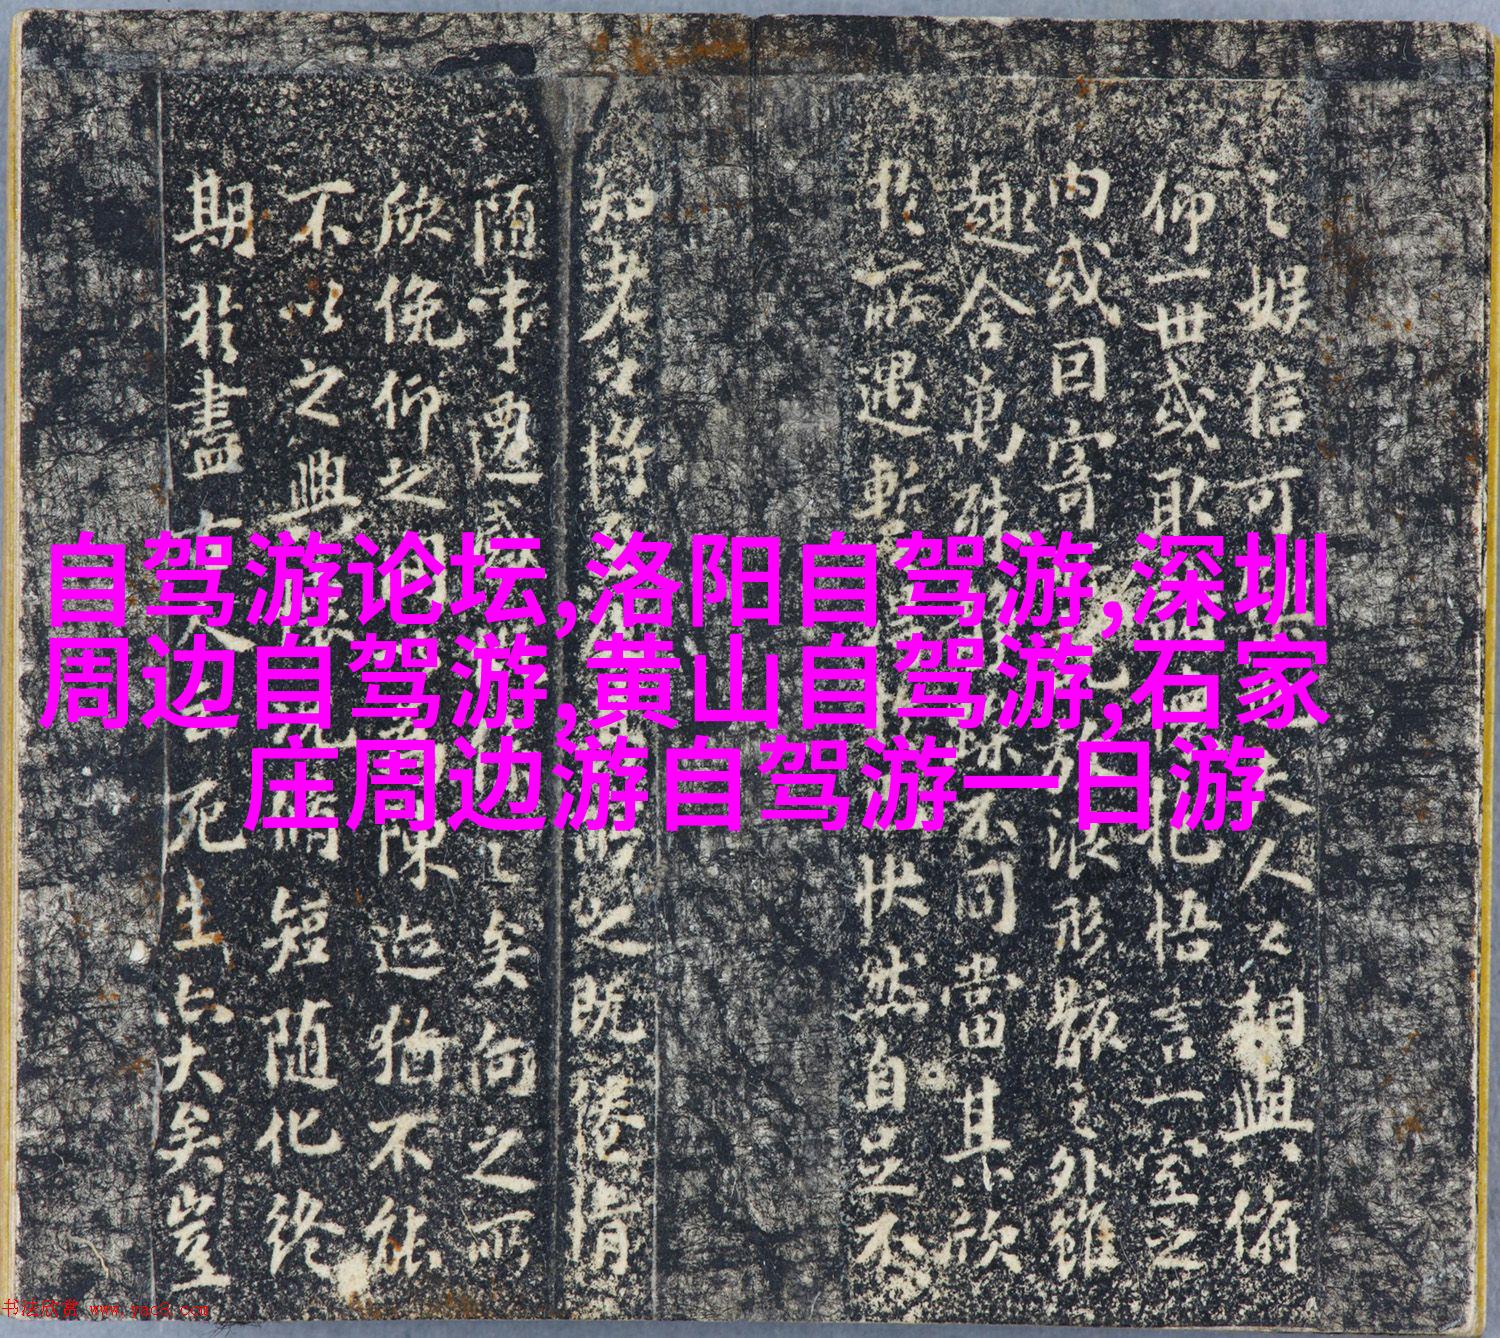 自驾游论坛,洛阳自驾游,深圳
周边自驾游,黄山自驾游,石家
庄周边游自驾游一日游
之娱信可夫人之相與俯
仰一世或取抱悟言一室之
内或因寄放浪形骸之外雖
趣舍萬殊不同當其欣
於所遇暫快然自足不
知老之將之既倦情
随事遷感之矣向之所
欣俛仰之間陳迹猶不能
不以之興短随化終
期於盡古人死生亦大矣豈
书法欣赏 www.yac8.com